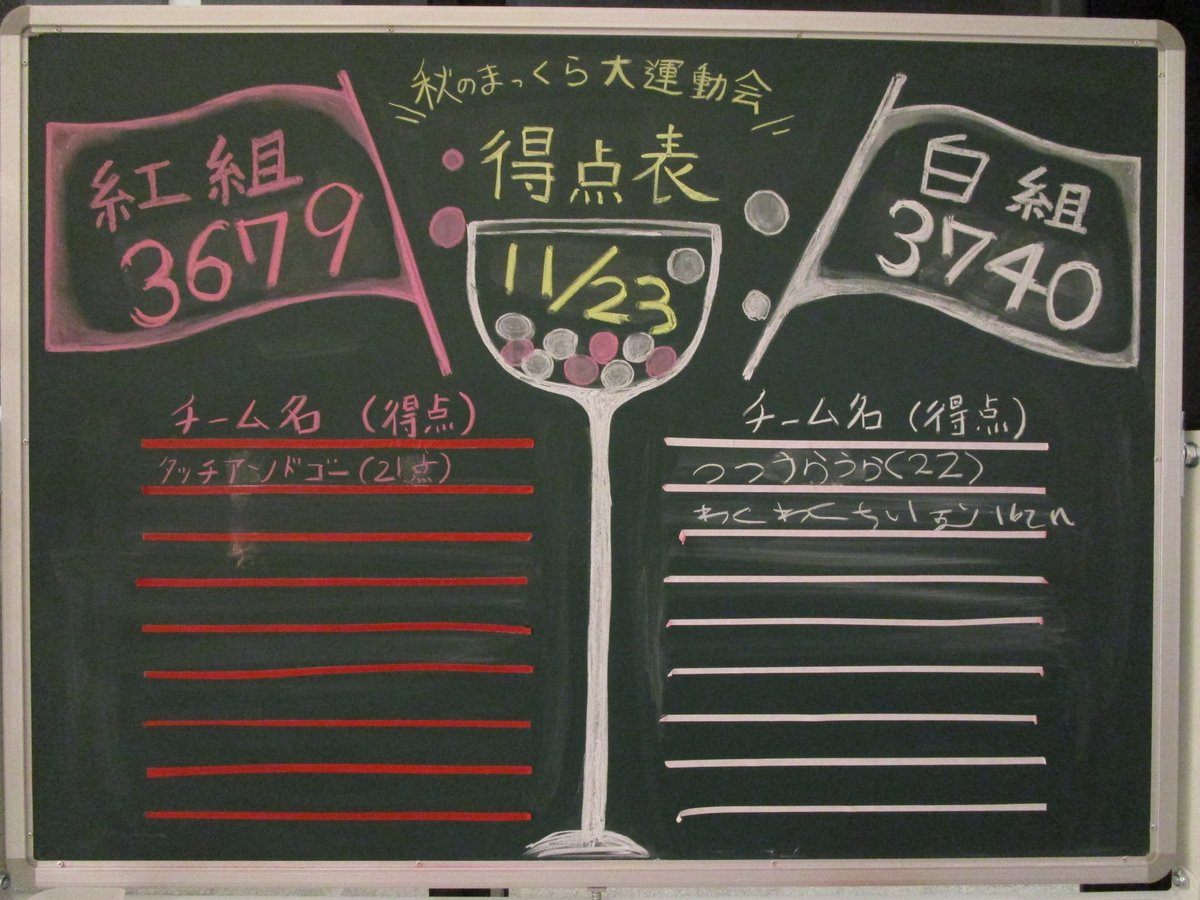 秋のまっくら大運動会
得点表
11/23
紅組
3679
白組
3740
チーム名 (得点)
タッチアンドゴー(21点)
チーム名 (得点)
つつうらうら(22)
わくわくちい